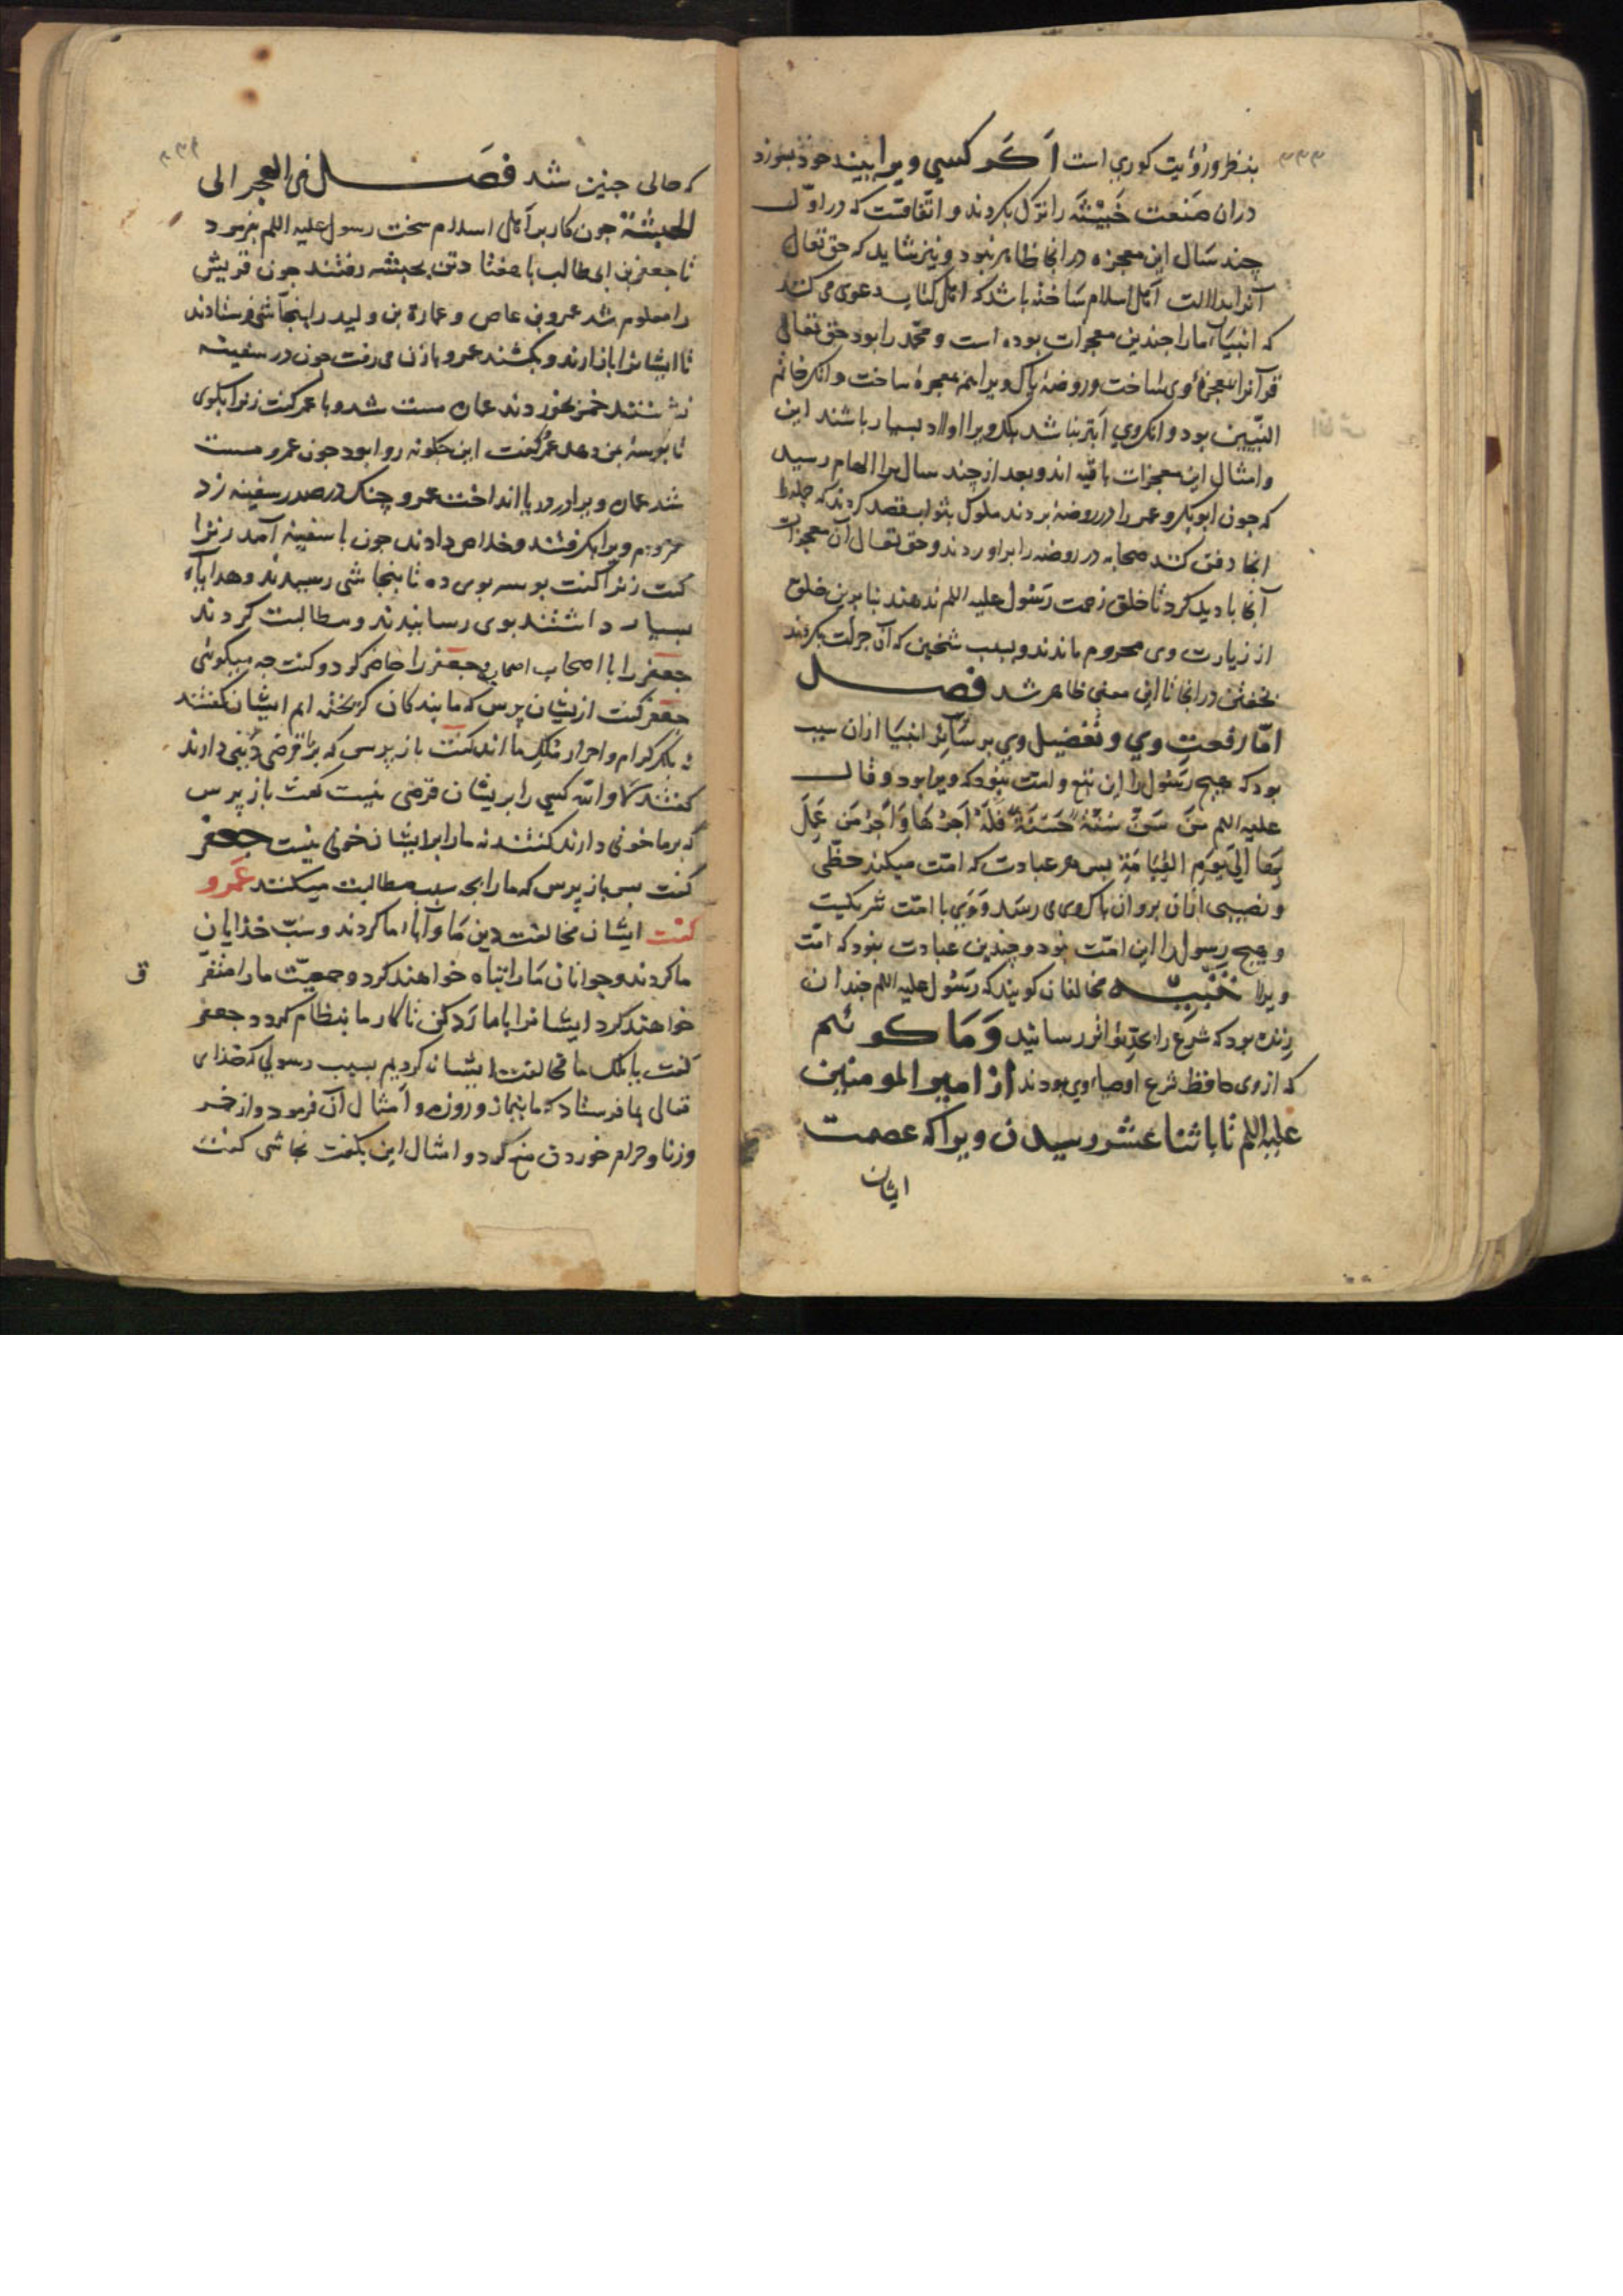 ۳۳۳
بنظر و رؤیت کوری است اکر کسی ویرا بیند خود بسوزد
دران صنعت خبیثه را ترک بکردند و اتفاقست که در اول
چند سال این معجزه در انجا ظاهر نبود و نیز شاید که حق تعالی
آنرا بدلالت اهل اسلام ساخته باشد که اهل کتاب دعوی می کنند
که انبیاء ما را جندین معجزات بوده است و محمد را بود حق تعالی
قرآنرا معجزهٔ وی ساخت و روضهٔ پاک ویرا هم معجزه ساخت و انک خاتم
النبیین بود و انک وی ابتر نباشد بلک ویرا اولاد بسیار باشند این
و امثال این معجزات باقیه اند و بعد از چند سال مرا الهام رسید
که جون ابوبکر و عمر را در روضه بردند ملوک بنواب قصد کردند که
انجا دفن کنند صحابه در روضه را براوردند و حق تعالی آن معجزات
آنجا بادید کرد تا خلق زحمت رسول علیه اللم ندهند بنابرین خلق
از زیارت وی محروم ماندند و بسبب شخین که آن جرأت بکردند
بخفتن در انجا تا این معنی ظاهر شد فصل
اما رفعت وی و تفضیل وی بر سائر انبیا ازان سبب
بود که هیج رسول را این تبع و امت نبود که ویرا بود و قال
علیه اللم من سن سنة حسنة فله اجرها و اجر من عمل
بها الی یوم القیامة بس هر عبادت که امت میکند حظی
و نصیبی ازان بروان پاک وی می رسد و وی با امت شریکست
و هیج رسول را این امت نبود و چندین عبادت نبود که امت
ویرا تنبیه مخالفان کویند که رسول علیه اللم جندان
زنده بود که شرع را بحد تواتر رسانید و ما کوئیم
که از وی حافظ شرع اوصیاء وی بودند از امیر المومنین
علیه اللم تا باثنا عشر رسیدن ویرا که عصمت
ایشان
که حالی جنین شد فصل فی الهجر الی
الحبشة جون کار بر اهل اسلام سخت رسول علیه اللم بفرمود
تا جعفر بن ابی طالب با هفتاد تن بحبشه رفتند جون قریش
را معلوم شد عمرو بن عاص و عمارة بن ولید را بنجاشی فرستادند
تا ایشانرا باز ارند و بکشند عمرو با زن می رفت جون در سفینه
نشستند خمر بخوردند عماره مست شد و با عمر کفت زنرا بکوی
تا بوسه بمن دهد عمر کفت این جکونه روا بود جون عمرو مست
شد عماره ویرا در دریا انداخت عمرو چنک در صدر سفینه زد
مردم ویرا بکرفتند و خلاص دادند جون با سفینه آمد زنرا
کفت زنرا کفت بوسه بوی ده تا بنجاشی رسیدند و هدایاء
بسیار داشتند بوی رسانیدند و مطالبت کردند
جعفر را با اصحاب اصماع جعفر را حاضر کرد و کفت جه میکوئی
جعفر کفت ازیشان پرس که ما بندکان کریخته ایم ایشان کفتند
نه بلکه کرام و احرار ملک ما اند کفت باز پرس که برما قرضی دینی دارند
کفتند لا والله کسی را بریشان قرضی نیست کفت باز پرس
که برما خونی دارند کفتند نه ما را برایشان خونی نیست جعفر
کفت بس باز پرس که ما را بجه سبب مطالبت میکنند عمرو
کفت ایشان مخالفت دین ما و آباء ما کردند و سب خذایان
ما کردند و جوانان ما را تباه خواهند کرد و جمعیت ما را متفرق
خواهند کرد ایشانرا با ما رد کن تا کار ما بنظام کردد جعفر
کفت یا ملک ما مخالفت ایشان کردیم بسبب رسولی که خذای
تعالی بما فرستاد که ما بنماز و روزه و امثال آن فرمود و از خمر
و زنا و حرام خوردن منع کرد و امثال این بکفت نجاشی کفت